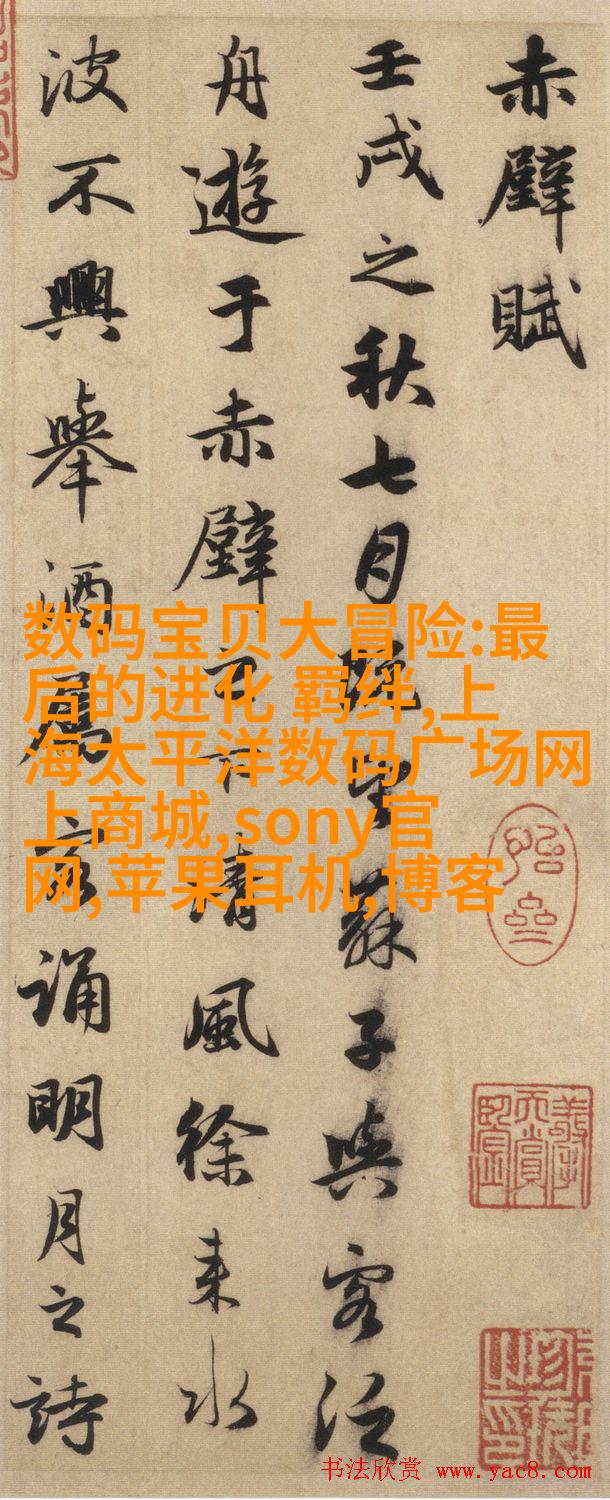 赤壁賦
壬戌之秋七月既望蘇子與客泛
舟遊于赤壁之下清風徐來水
波不興舉酒屬客誦明月之詩
数码宝贝大冒险:最
后的进化 羁绊,上
海太平洋数码广场网
上商城,sony官
网,苹果耳机,博客
书法欣赏 www.yac8.com